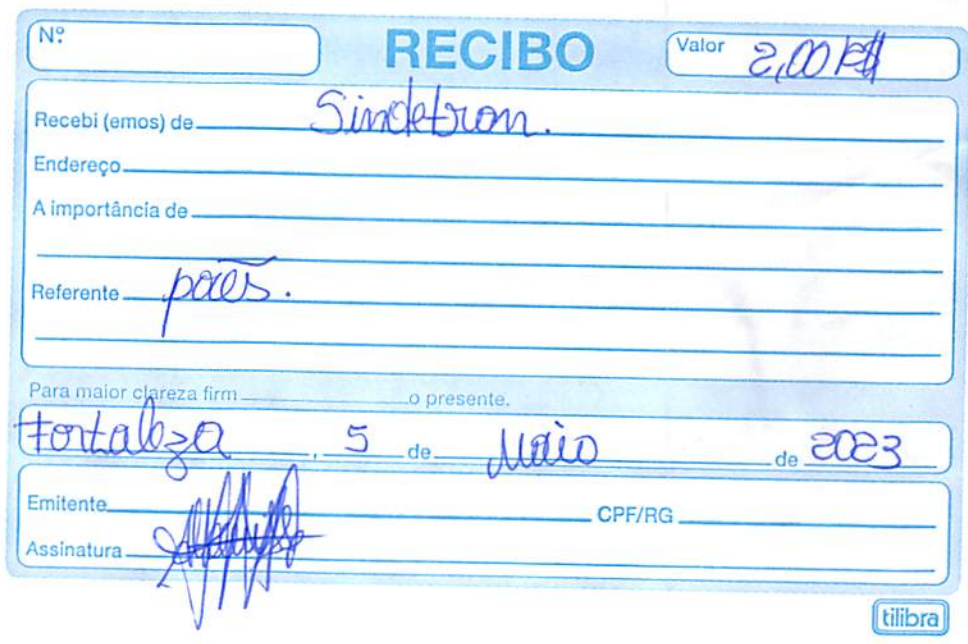 Nº RECIBO Valor 2,00 R$
Recebi (emos) de Sindetron.
Endereço
A importância de
Referente pães.
Para maior clareza firm o presente.
Fortaleza, 5 de Maio de 2023
Emitente CPF/RG
Assinatura
tilibra